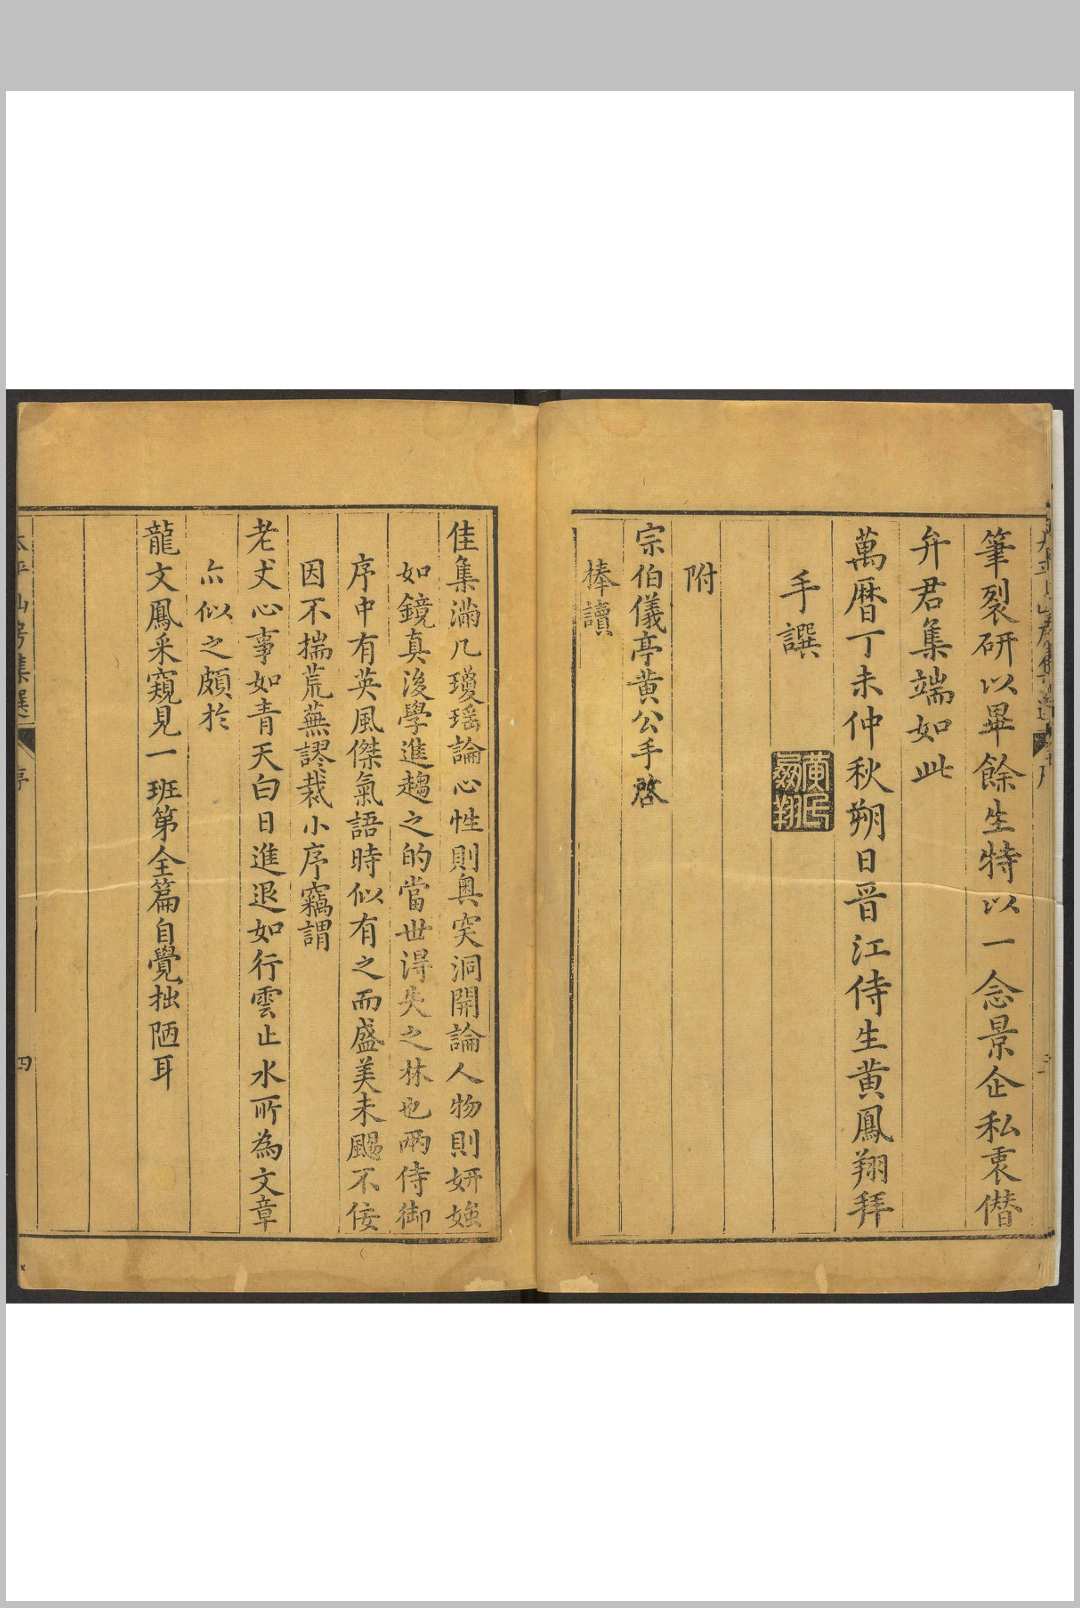 筆裂研以畢餘生特以一念景企私衷僭
弁君集端如此
萬曆丁未仲秋朔日晉江侍生黃鳳翔拜
手譔
黃氏
附
宗伯儀亭黃公手啓
捧讀
佳集滿几瓊瑤論心性則奧突洞開論人物則妍媸
如鏡真後學進趨之的當世得失之林也兩侍御
序中有英風傑氣語時似有之而盛美未颺不佞
因不揣荒蕪謬裁小序竊謂
老丈心事如青天白日進退如行雲止水所為文章
亦似之頗於
龍文鳳采窺見一班第全篇自覺拙陋耳
序
四